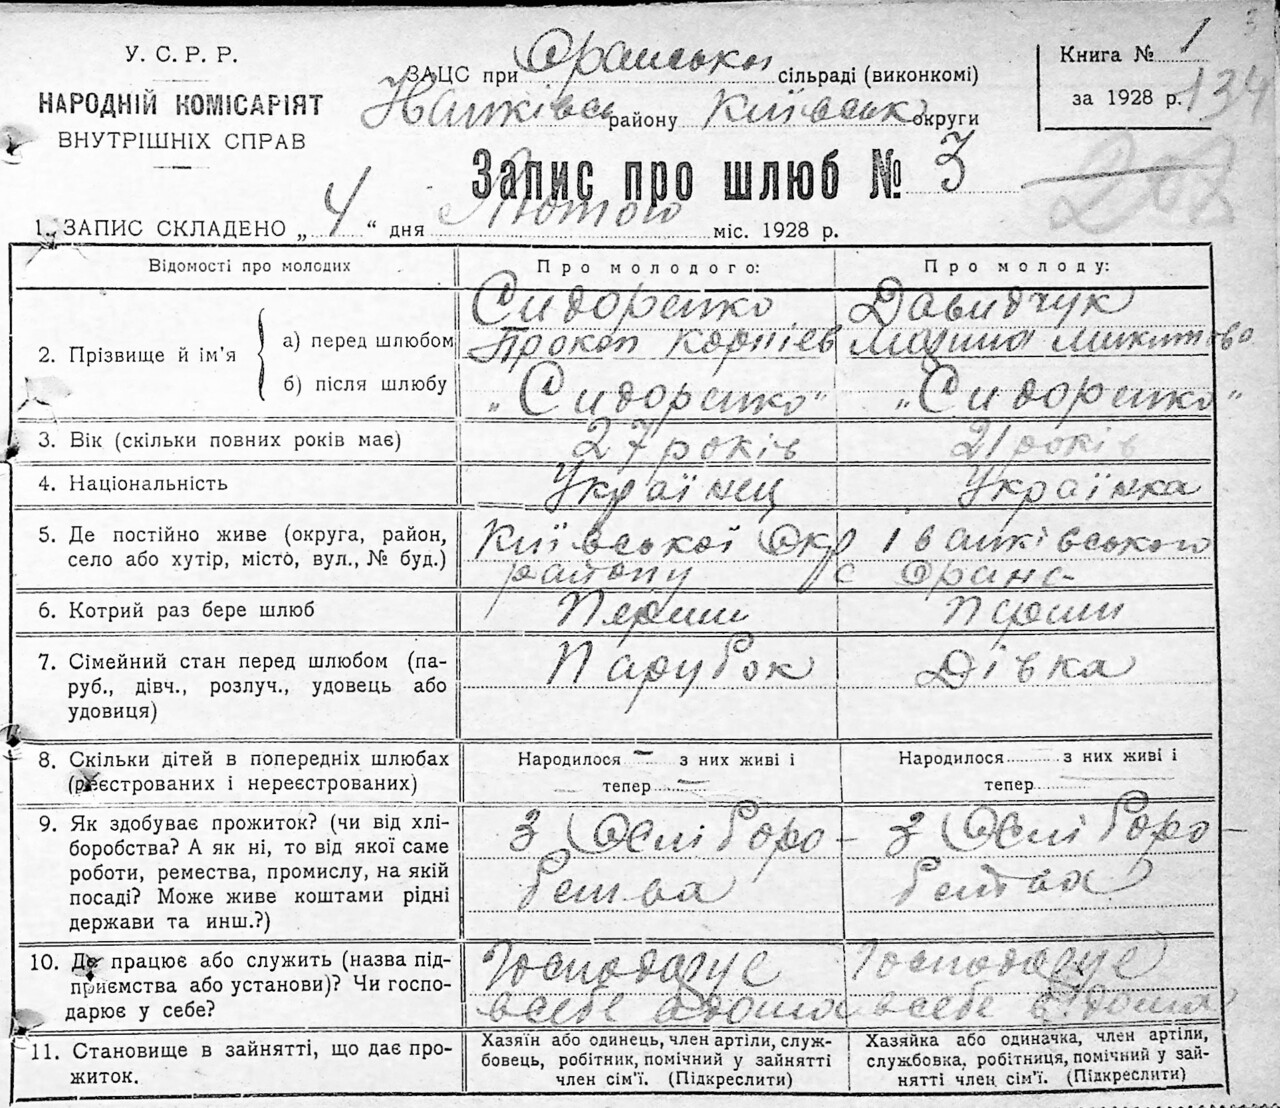 3
У. С. Р. Р.
НАРОДНІЙ КОМІСАРІЯТ
ВНУТРІШНІХ СПРАВ
ЗАЦС приОранські сільраді (виконкомі)
району Київськ округи
Книга № 1
за 1928 р. 134
207
Запис про шлюб № 3
1. ЗАПИС СКЛАДЕНО „ 4 “ дня Лютого міс. 1928 р.
Відомості про молодих Про молодого: Про молоду:
2. Прізвище й ім'я
а) перед шлюбом Сидоренко Давидчук
Прокоп Корніев Микитово
б) після шлюбу „Сидоренко“ „Сидоренко“
3. Вік (скільки повних років має) 27 років 21 років
4. Національність Українец Українка
5. Де постійно живе (округа, район, Київської Окр Іванківського
село або хутір, місто, вул., № буд.) району с Оране
6. Котрий раз бере шлюб Перши Перши
7. Сімейний стан перед шлюбом (па- Парубок Дівка
руб., дівч., розлуч., удовець або
удовиця)
8. Скільки дітей в попередніх шлюбах Народилося — з них живі і Народилося з них живі і
(реєстрованих і нереєстрованих) тепер — тепер
9. Як здобуває прожиток? (чи від хлі- З Хліборо- З Хліборо-
боробства? А як ні, то від якої саме
роботи, ремества, промислу, на якій бства бства
посаді? Може живе коштами рідні
держави та инш.?)
10. Де працює або служить (назва під- Господарує Господарує
приємства або установи)? Чи госпо- в себе вдома в себе вдома
дарює у себе?
11. Становище в зайнятті, що дає про-
житок.
Хазяїн або одинець, член артіли, служ-
бовець, робітник, помічний у зайнятті
член сім'ї. (Підкреслити)
Хазяйка або одиначка, член артіли,
службовка, робітниця, помічний у зай-
нятті член сім'ї. (Підкреслити)